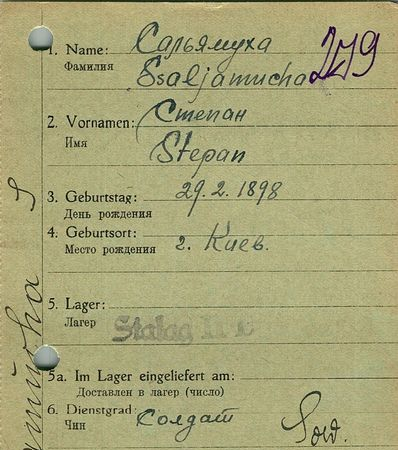 1. Name: Сальямуха
Фамилия Ssaljamucha 279
2. Vornamen: Степан
Имя Stepan
3. Geburtstag: 29.2.1898
День рождения
4. Geburtsort: г. Киев.
Место рождения
5. Lager:
Лагер Stalag
5a. Im Lager eingeliefert am:
Доставлен в лагер (число)
6. Dienstgrad: Солдат Sold.
Чин